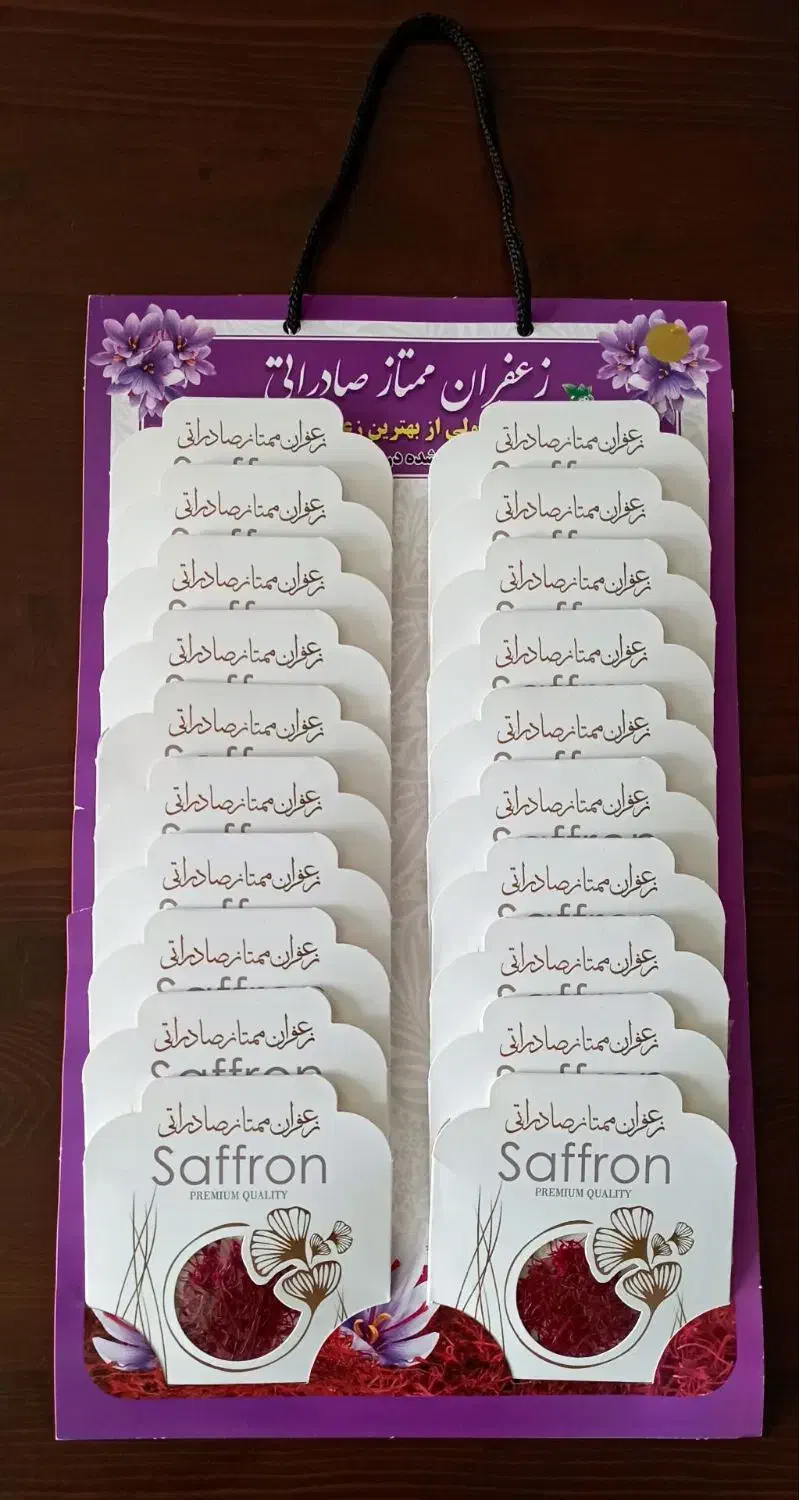 زعفران ممتاز صادراتی
از بهترین
شده در
زعفران ممتاز صادراتی
زعفران ممتاز صادراتی
زعفران ممتاز صادراتی
زعفران ممتاز صادراتی
زعفران ممتاز صادراتی
زعفران ممتاز صادراتی
زعفران ممتاز صادراتی
زعفران ممتاز صادراتی
Saffron
زعفران ممتاز صادراتی
Saffron
زعفران ممتاز صادراتی
Saffron
PREMIUM QUALITY
زعفران ممتاز صادراتی
زعفران ممتاز صادراتی
زعفران ممتاز صادراتی
زعفران ممتاز صادراتی
زعفران ممتاز صادراتی
زعفران ممتاز صادراتی
Saffron
زعفران ممتاز صادراتی
Saffron
زعفران ممتاز صادراتی
Saffron
زعفران ممتاز صادراتی
Saffron
زعفران ممتاز صادراتی
Saffron
PREMIUM QUALITY